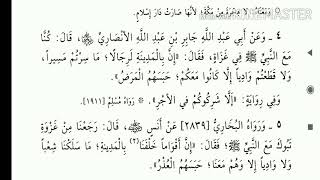 وَمَعْنَاهُ: لا هِجْرَةَ مِنْ مَكَّةَ؛ لأنَّهَا صَارَتْ دَارَ إِسْلَامٍ.
٤ ـ وَعَنْ أَبِي عَبْدِ اللَّهِ جَابِرِ بْنِ عَبْدِ اللَّهِ الأَنْصَارِيِّ ﵄، قَالَ: كُنَّا
مَعَ النَّبِيِّ ﷺ فِي غَزَاةٍ، فَقَالَ: «إِنَّ بِالْمَدِينَةِ لَرِجَالًا؛ مَا سِرْتُمْ مَسِيراً،
وَلا قَطَعْتُمْ وَادِياً إِلَّا كَانُوا مَعَكُمْ؛ حَبَسَهُمُ الْمَرَضُ».
وَفِي رِوَايَةٍ: «إِلَّا شَرِكُوكُمْ فِي الأَجْرِ». رَوَاهُ مُسْلِمٌ [١٩١١].
٥ ـ وَرَوَاهُ الْبُخَارِيُّ [٢٨٣٩] عَنْ أَنَسٍ ﵁، قَالَ: رَجَعْنَا مِنْ غَزْوَةِ
تَبُوكَ مَعَ النَّبِيِّ ﷺ، فَقَالَ: «إِنَّ أَقْوَاماً خَلْفَنَا(٢) بِالْمَدِينَةِ؛ مَا سَلَكْنَا شِعْباً
وَلا وَادِياً إِلَّا وَهُمْ مَعَنَا؛ حَبَسَهُمُ الْعُذْرُ».